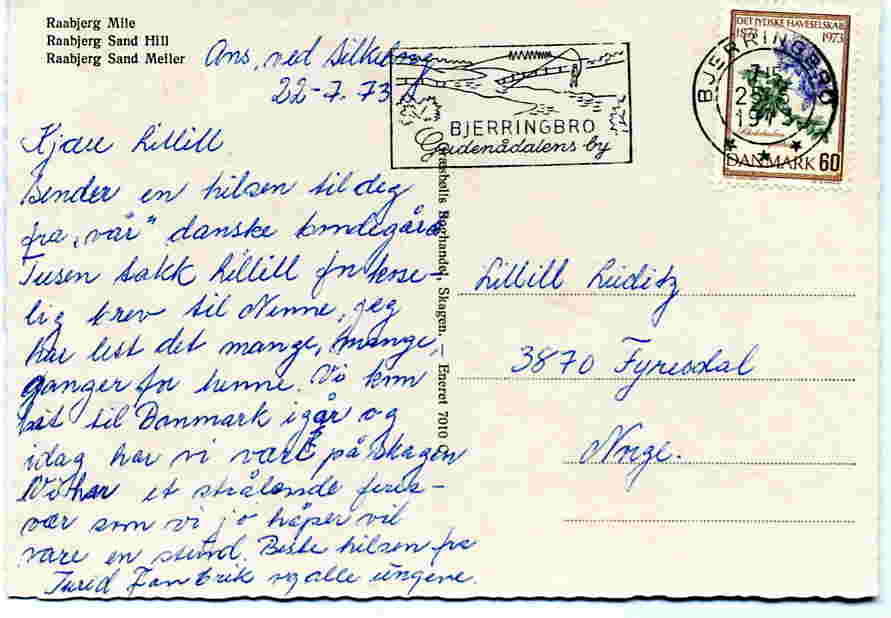 Raabjerg Mile
Raabjerg Sand Hill
Raabjerg Sand Meller
Ans, ved Silkeborg
22-7.73
Kjære Lillill
Sender en hilsen til deg
fra "vår" danske bondegård
Tusen takk Lillill for kose-
lig brev til Nenne, jeg
har lest det mange, mange,
ganger for henne. Vi kom
hit til Danmark igår og
idag har vi vært på skagen
Vi har et strålende ferie-
vær som vi jo håper vil
vare en stund. Beste hilsen fra
Turid Jan Erik og alle ungene.
BJERRINGBRO
Gudenådalens by
BJERRINGBRO
1973
DET JYDSKE HAVESELSKAB
1873 1973
DANMARK 60
Boghandel, Skagen. — Eneret 7010
Lillill Luditz
3870 Fyresdal
Norge.